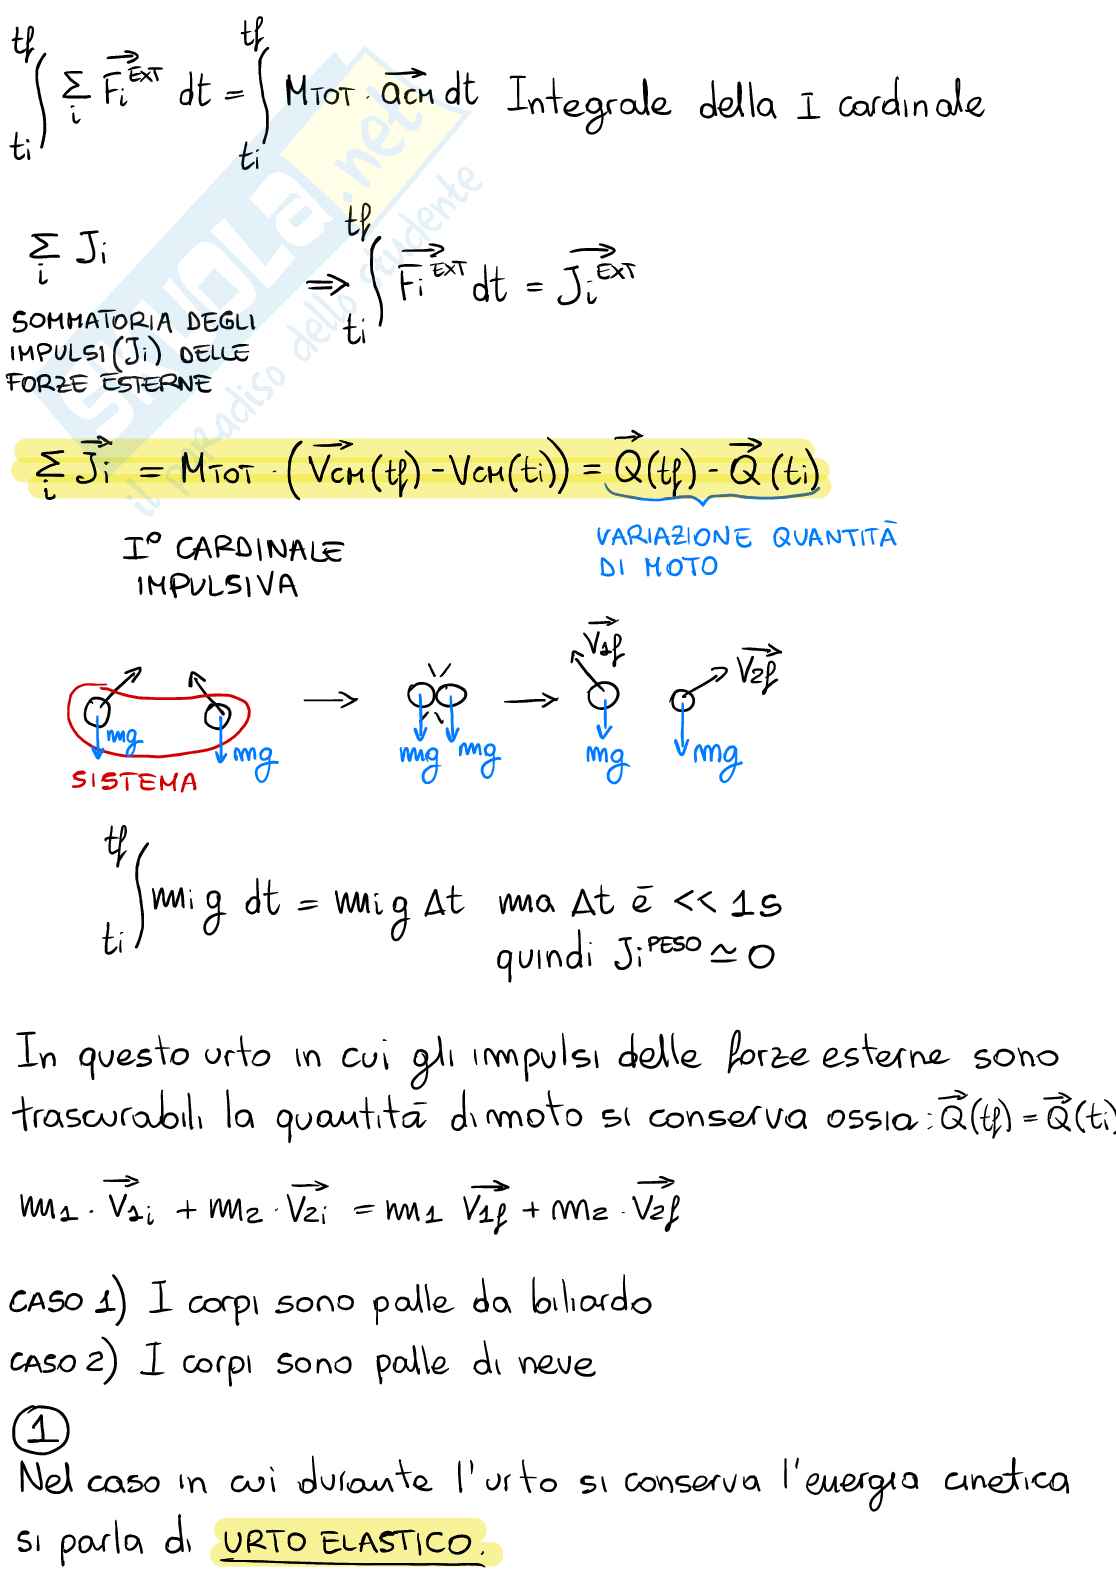 ∫_{ti}^{tf} Σ_i F⃗_i^{EXT} dt = ∫_{ti}^{tf} M_{TOT} · a⃗_{CM} dt Integrale della I cardinale
Σ_i J_i
⇒ ∫_{ti}^{tf} F⃗_i^{EXT} dt = J⃗_i^{EXT}
SOMMATORIA DEGLI
IMPULSI (Ji) DELLE
FORZE ESTERNE
Σ_i J⃗_i = M_{TOT} · (V⃗_{CM}(tf) - V_{CM}(ti)) = Q⃗(tf) - Q⃗(ti)
I° CARDINALE
IMPULSIVA
VARIAZIONE QUANTITĀ
DI MOTO
V⃗_{1f}
V⃗_{2f}
mg mg mg mg mg mg
SISTEMA
∫_{ti}^{tf} m_i g dt = m_i g Δt ma Δt ē << 1s
quindi J_i^{PESO} ≃ 0
In questo urto in cui gli impulsi delle forze esterne sono
trascurabili la quantitā di moto si conserva ossia: Q⃗(tf) = Q⃗(ti)
m_1 · V⃗_{1i} + m_2 · V⃗_{2i} = m_1 V⃗_{1f} + m_2 · V⃗_{2f}
CASO 1) I corpi sono palle da biliardo
CASO 2) I corpi sono palle di neve
1
Nel caso in cui durante l'urto si conserva l'energia cinetica
si parla di URTO ELASTICO.
SKUOLA.net
il paradiso dello studente